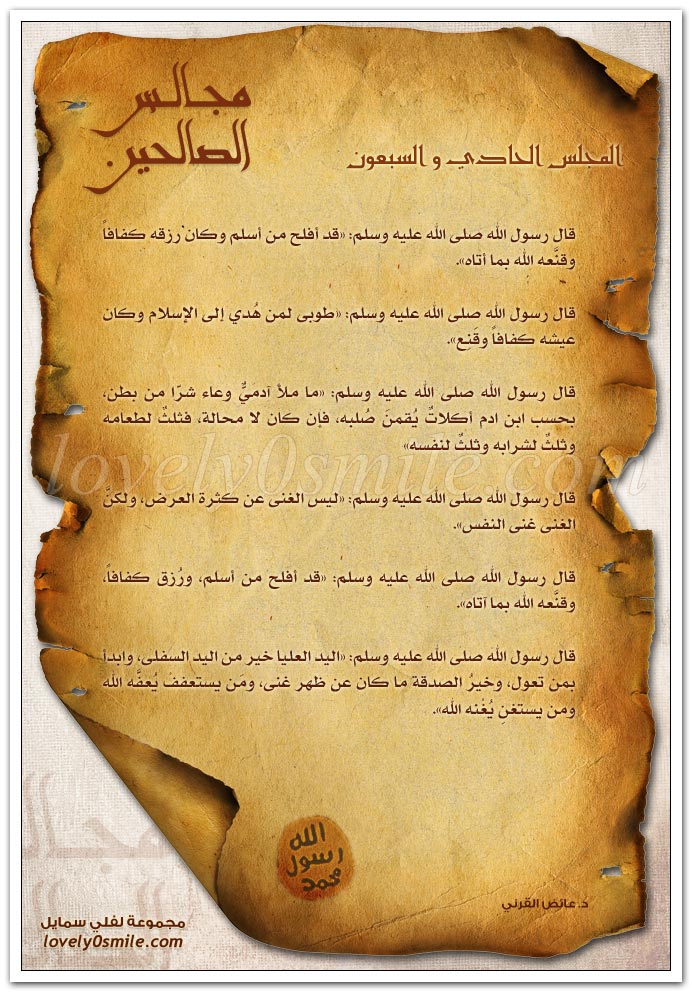 مجالس
الصالحين
المجلس الحادي و السبعون
قال رسول الله صلى الله عليه وسلم: «قد أفلح من أسلم وكان رزقه كفافاً
وقنَّعه الله بما أتاه».
قال رسول الله صلى الله عليه وسلم: «طوبى لمن هُدي إلى الإسلام وكان
عيشه كفافاً وقَنِع».
قال رسول الله صلى الله عليه وسلم: «ما ملأ آدميٌّ وعاء شرّا من بطن،
بحسب ابن ادم أكلاتٌ يُقمنَ صُلبه، فإن كان لا محالة، فثلثٌ لطعامه
وثلثٌ لشرابه وثلثٌ لنفسه»
lovely0smile.com
قال رسول الله صلى الله عليه وسلم: «ليس الغنى عن كثرة العرض، ولكنَّ
الغنى غنى النفس».
قال رسول الله صلى الله عليه وسلم: «قد أفلح من أسلم، ورُزق كفافاً،
وقنَّعه الله بما آتاه».
قال رسول الله صلى الله عليه وسلم: «اليد العليا خير من اليد السفلى، وابدأ
بمن تعول، وخيرُ الصدقة ما كان عن ظهر غنى، ومَن يستعففَ يُعفَّه الله
ومن يستغنِ يُغْنه الله».
الله
رسول
محمد
د. عائض القرني
مجموعة لفلي سمايل
lovely0smile.com